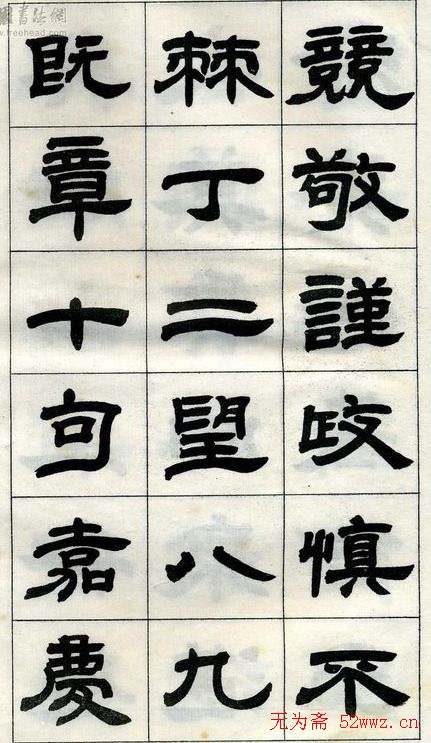 競敬謹政慎不
棘丁二望八九
既章十句嘉慶
書法網
www.freehead.com
无为斋 52wwz.cn